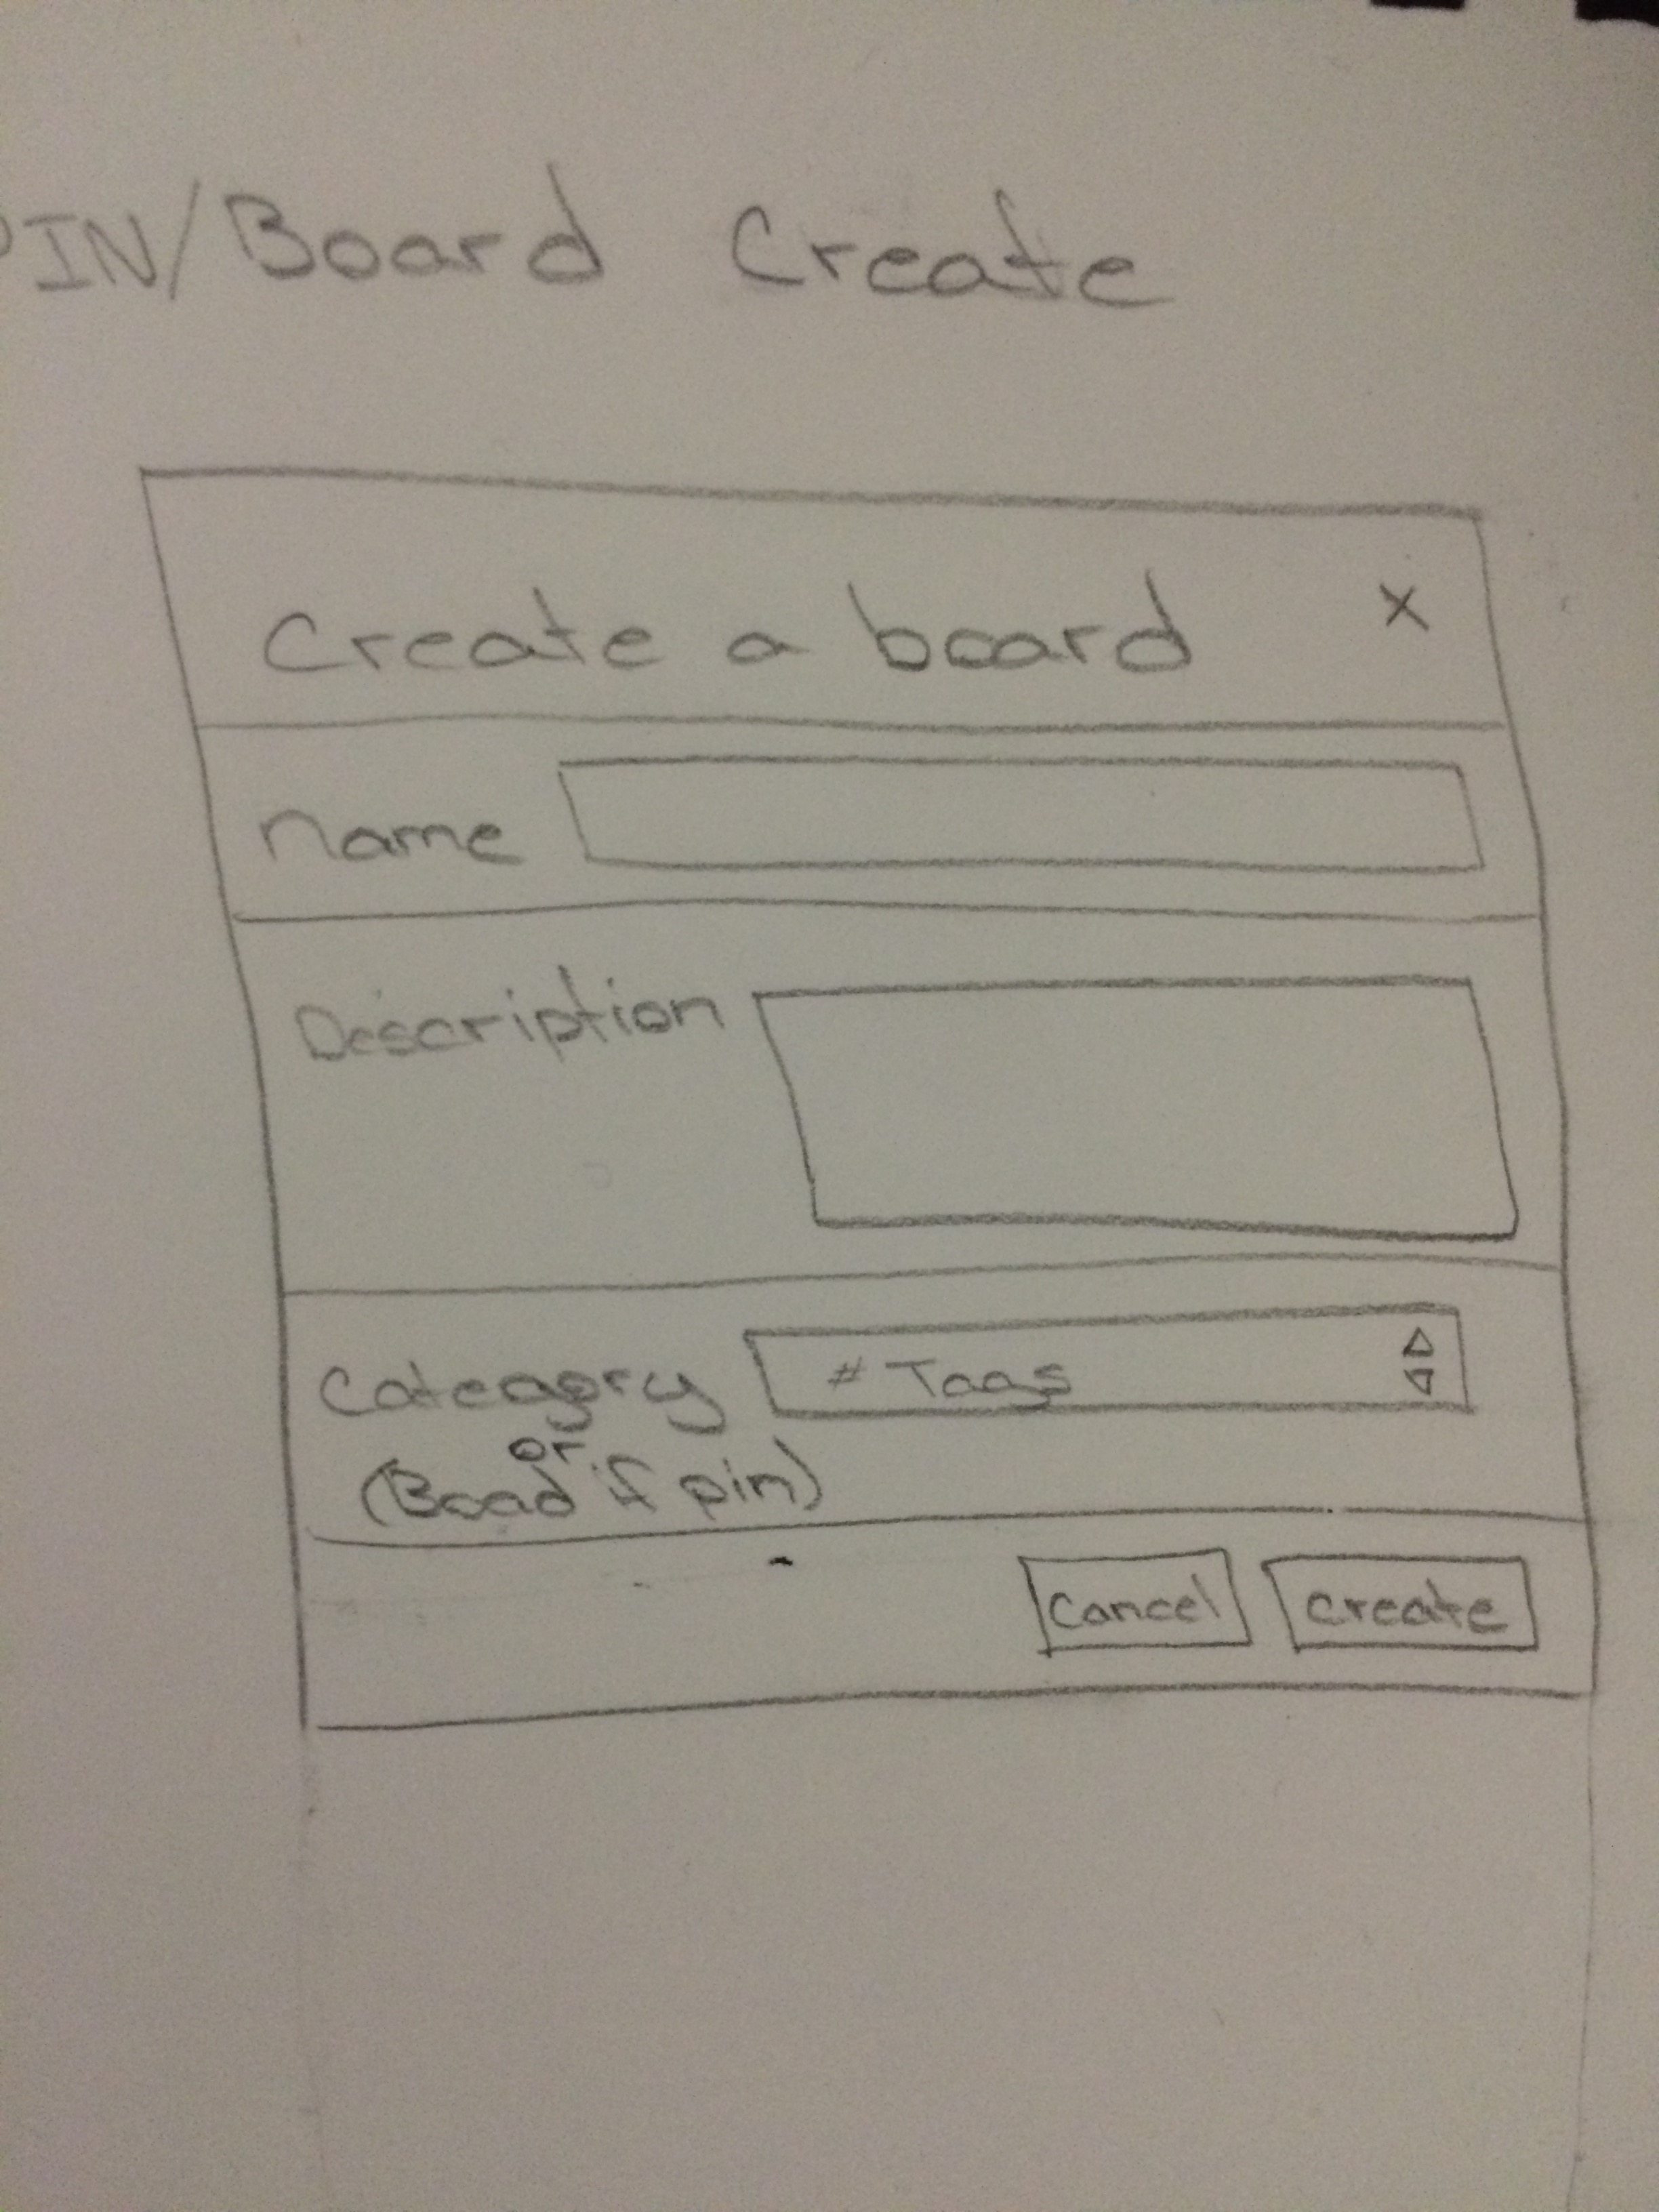 PIN/Board Create
Create a board X
name
Description
Category # Tags
or
(Boad if pin)
Cancel create